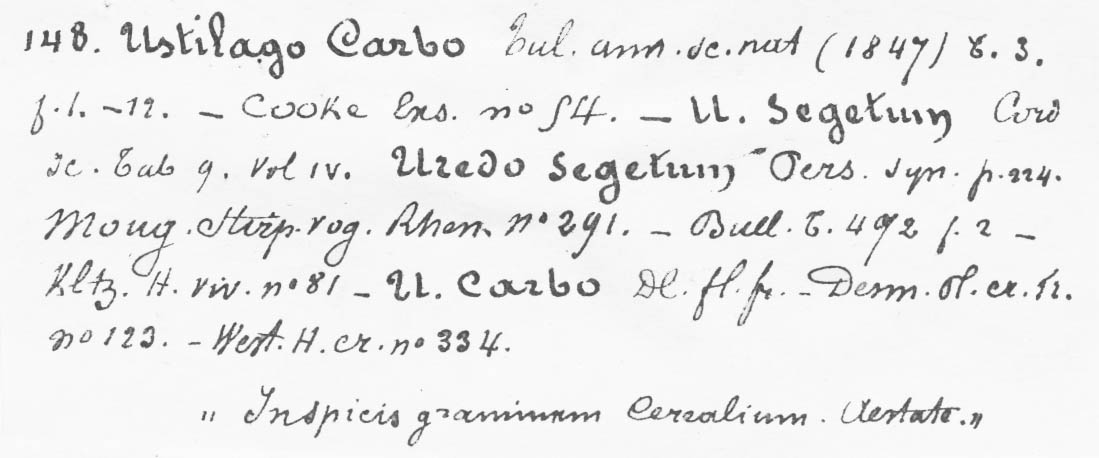 148. Ustilago Carbo Tul. ann. sc. nat (1847) t. 3.
f. 1. -12. - Cooke Exs. no 54. - U. Segetum Cord
Ic. Tab 9. Vol IV. Uredo Segetum Pers. Syn. p. 224.
Moug. Stirp. vog. Rhen. no 291. - Bull. t. 492 f. 2 -
Kltz. H. viv. no 81 - U. Carbo Dl. fl. fr. - Desm. Pl. cr. Fr.
no 123. - West. H. cr. no 334.
" In spicis graminum Cerealium. Aestate. "